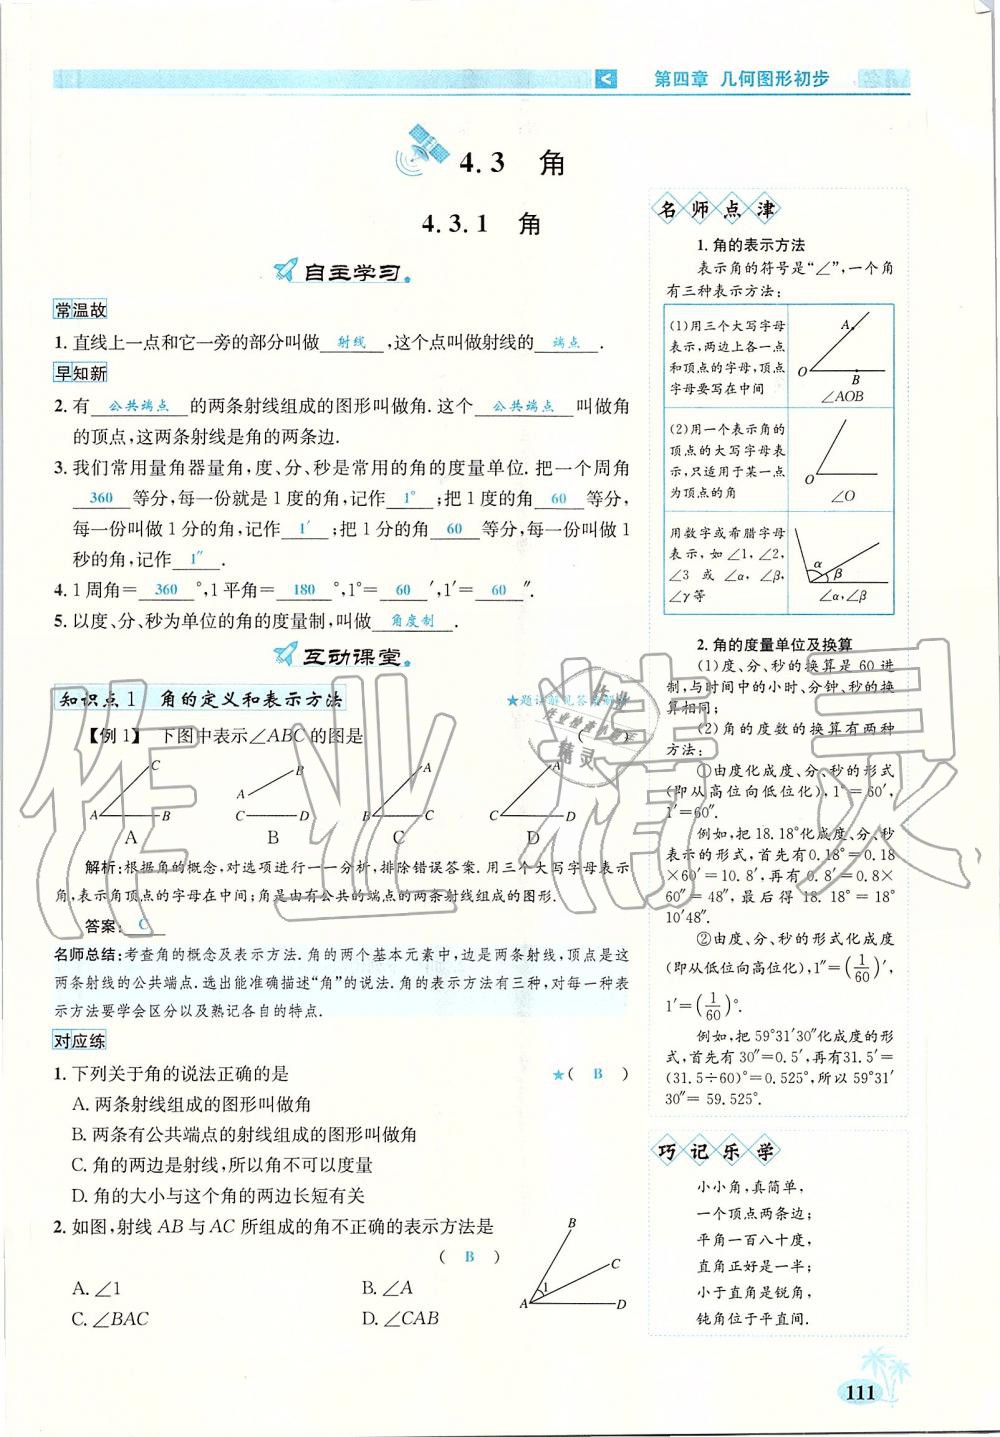 第四章 几何图形初步
4.3 角
4.3.1 角
自主学习
常温故
1. 直线上一点和它一旁的部分叫做 射线 ,这个点叫做射线的 端点 .
早知新
2. 有 公共端点 的两条射线组成的图形叫做角. 这个 公共端点 叫做角
的顶点,这两条射线是角的两条边.
3. 我们常用量角器量角,度、分、秒是常用的角的度量单位. 把一个周角
360 等分,每一份就是 1 度的角,记作 1° ;把 1 度的角 60 等分,
每一份叫做 1 分的角,记作 1′ ;把 1 分的角 60 等分,每一份叫做 1
秒的角,记作 1″ .
4. 1 周角= 360 °,1 平角= 180 °,1°= 60 ′,1′= 60 ″.
5. 以度、分、秒为单位的角的度量制,叫做 角度制 .
互动课堂
知识点 1 角的定义和表示方法
【例 1】 下图中表示∠ABC 的图是 ( )
C
A B
A
B
A
C D
B
A
B C
C
A
C D
D
解析:根据角的概念,对选项进行一一分析,排除错误答案. 用三个大写字母表示
角,表示角顶点的字母在中间;角是由有公共的端点的两条射线组成的图形.
答案: C
名师总结:考查角的概念及表示方法. 角的两个基本元素中,边是两条射线,顶点是这
两条射线的公共端点. 选出能准确描述“角”的说法. 角的表示方法有三种,对每一种表
示方法要学会区分以及熟记各自的特点.
对应练
1. 下列关于角的说法正确的是 ★( B )
A. 两条射线组成的图形叫做角
B. 两条有公共端点的射线组成的图形叫做角
C. 角的两边是射线,所以角不可以度量
D. 角的大小与这个角的两边长短有关
2. 如图,射线 AB 与 AC 所组成的角不正确的表示方法是
( B )
A. ∠1 B. ∠A
C. ∠BAC D. ∠CAB
B
C
1
A D
名师点津
1. 角的表示方法
表示角的符号是“∠”,一个角
有三种表示方法:
(1)用三个大写字母
表示,两边上各一点
和顶点的字母,顶点
字母要写在中间
A
O B
∠AOB
(2)用一个表示角的
顶点的大写字母表
示,只适用于某一点
为顶点的角
∠O
用数字或希腊字母
表示,如∠1,∠2,
∠3 或 ∠α,∠β,
∠γ 等
α β
∠α,∠β
2. 角的度量单位及换算
(1)度、分、秒的换算是 60 进
制,与时间中的小时、分钟、秒的换
算相同;
(2)角的度数的换算有两种
方法:
①由度化成度、分、秒的形式
(即从高位向低位化),1°=60′,
1′=60″.
例如,把 18.18°化成度、分、秒
表示的形式,首先有0.18°=0.18
×60′=10.8′,再有0.8′=0.8×
60″=48″,最后得 18.18°=18°
10′48″.
②由度、分、秒的形式化成度
(即从低位向高位化),1″=(1/60)′,
1′=(1/60)°.
例如,把 59°31′30″化成度的形
式,首先有 30″=0.5′,再有31.5′=
(31.5÷60)°=0.525°,所以 59°31′
30″=59.525°.
巧记乐学
小小角,真简单,
一个顶点两条边;
平角一百八十度,
直角正好是一半;
小于直角是锐角,
钝角位于平直间.
111
作业精灵